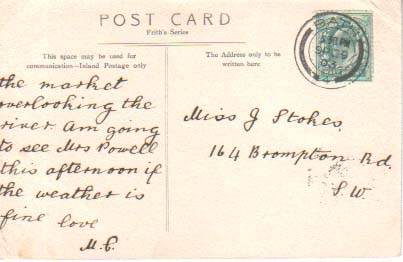 POST CARD
Frith's Series
This space may be used for
communication—Island Postage only
The Address only to be
written here
the market
overlooking the
river. Am going
to see Mrs Powell
this afternoon if
the weather is
fine love
M.C.
Miss J Stokes
164 Brompton Rd.
S.W.
BATH
SP 9
03